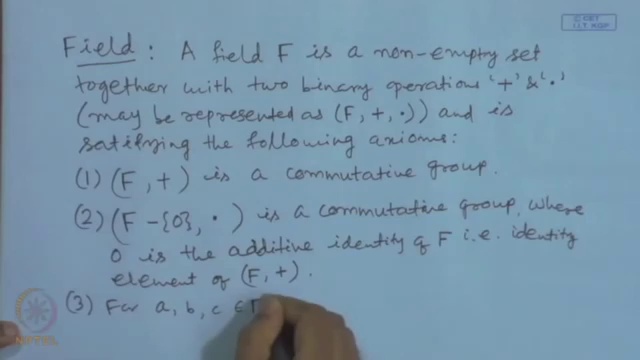 © CET
I.I.T. KGP
Field : A field F is a non-empty set
together with two binary operations '+' & '.'
(may be represented as (F, +, .)) and is
satisfying the following axioms:
(1) (F, +) is a commutative group.
(2) (F - {0}, .) is a commutative group, where
0 is the additive identity of F i.e. identity
element of (F, +).
(3) For a, b, c ∈
NPTEL